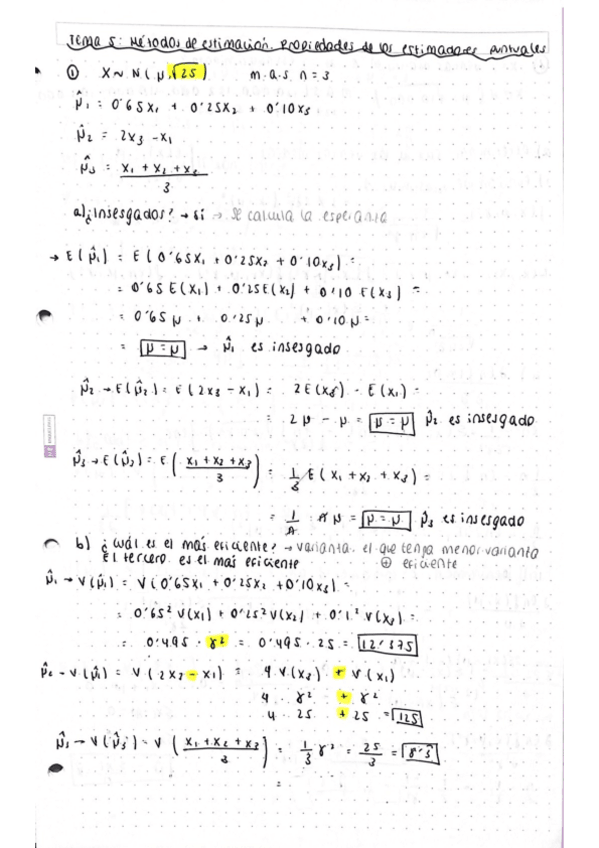 Tema 5: Métodos de estimación. Propiedades de los estimadores puntuales
① X ~ N(μ, √25) m.a.s. n = 3
μ̂₁ = 0'65x₁ + 0'25x₂ + 0'10x₃
μ̂₂ = 2x₃ - x₁
μ̂₃ = (x₁ + x₂ + x₃)/3
a) ¿Insesgados? → sí → se calcula la esperanza
→ E(μ̂₁) = E(0'65x₁ + 0'25x₂ + 0'10x₃) =
= 0'65 E(x₁) + 0'25E(x₂) + 0'10 E(x₃) =
= 0'65 μ + 0'25μ + 0'10 μ =
= μ = μ → μ̂₁ es insesgado
μ̂₂ → E(μ̂₂) = E(2x₃ - x₁) = 2E(x₃) - E(x₁) =
= 2μ - μ = μ = μ μ̂₂ es insesgado
μ̂₃ → E(μ̂₃) = E((x₁ + x₂ + x₃)/3) = 1/3 E(x₁ + x₂ + x₃) =
= μ = μ μ̂₃ es insesgado
b) ¿cuál es el más eficiente? → varianza. el que tenga menor varianza
El tercero es el más eficiente ⊕ eficiente
μ̂₁ → V(μ̂₁) = V(0'65x₁ + 0'25x₂ + 0'10x₃) =
= 0'65² V(x₁) + 0'25² V(x₂) + 0'1² V(x₃) =
= 0'495 · γ² = 0'495 · 25 = 12'375
μ̂₂ → V(μ̂₂) = V(2x₃ - x₁) = 4 V(x₃) + V(x₁)
4 · γ² + γ²
4 · 25 + 25 = 125
μ̂₃ → V(μ̂₃) = V((x₁ + x₂ + x₃)/3) = 1/3 γ² = 25/3 = 8'3
=